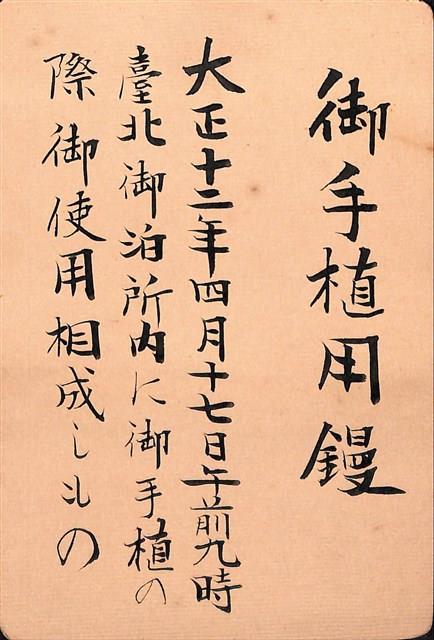 御手植用鏝
大正十二年四月十七日午前九時
臺北御泊所内に御手植の
際御使用相成しもの